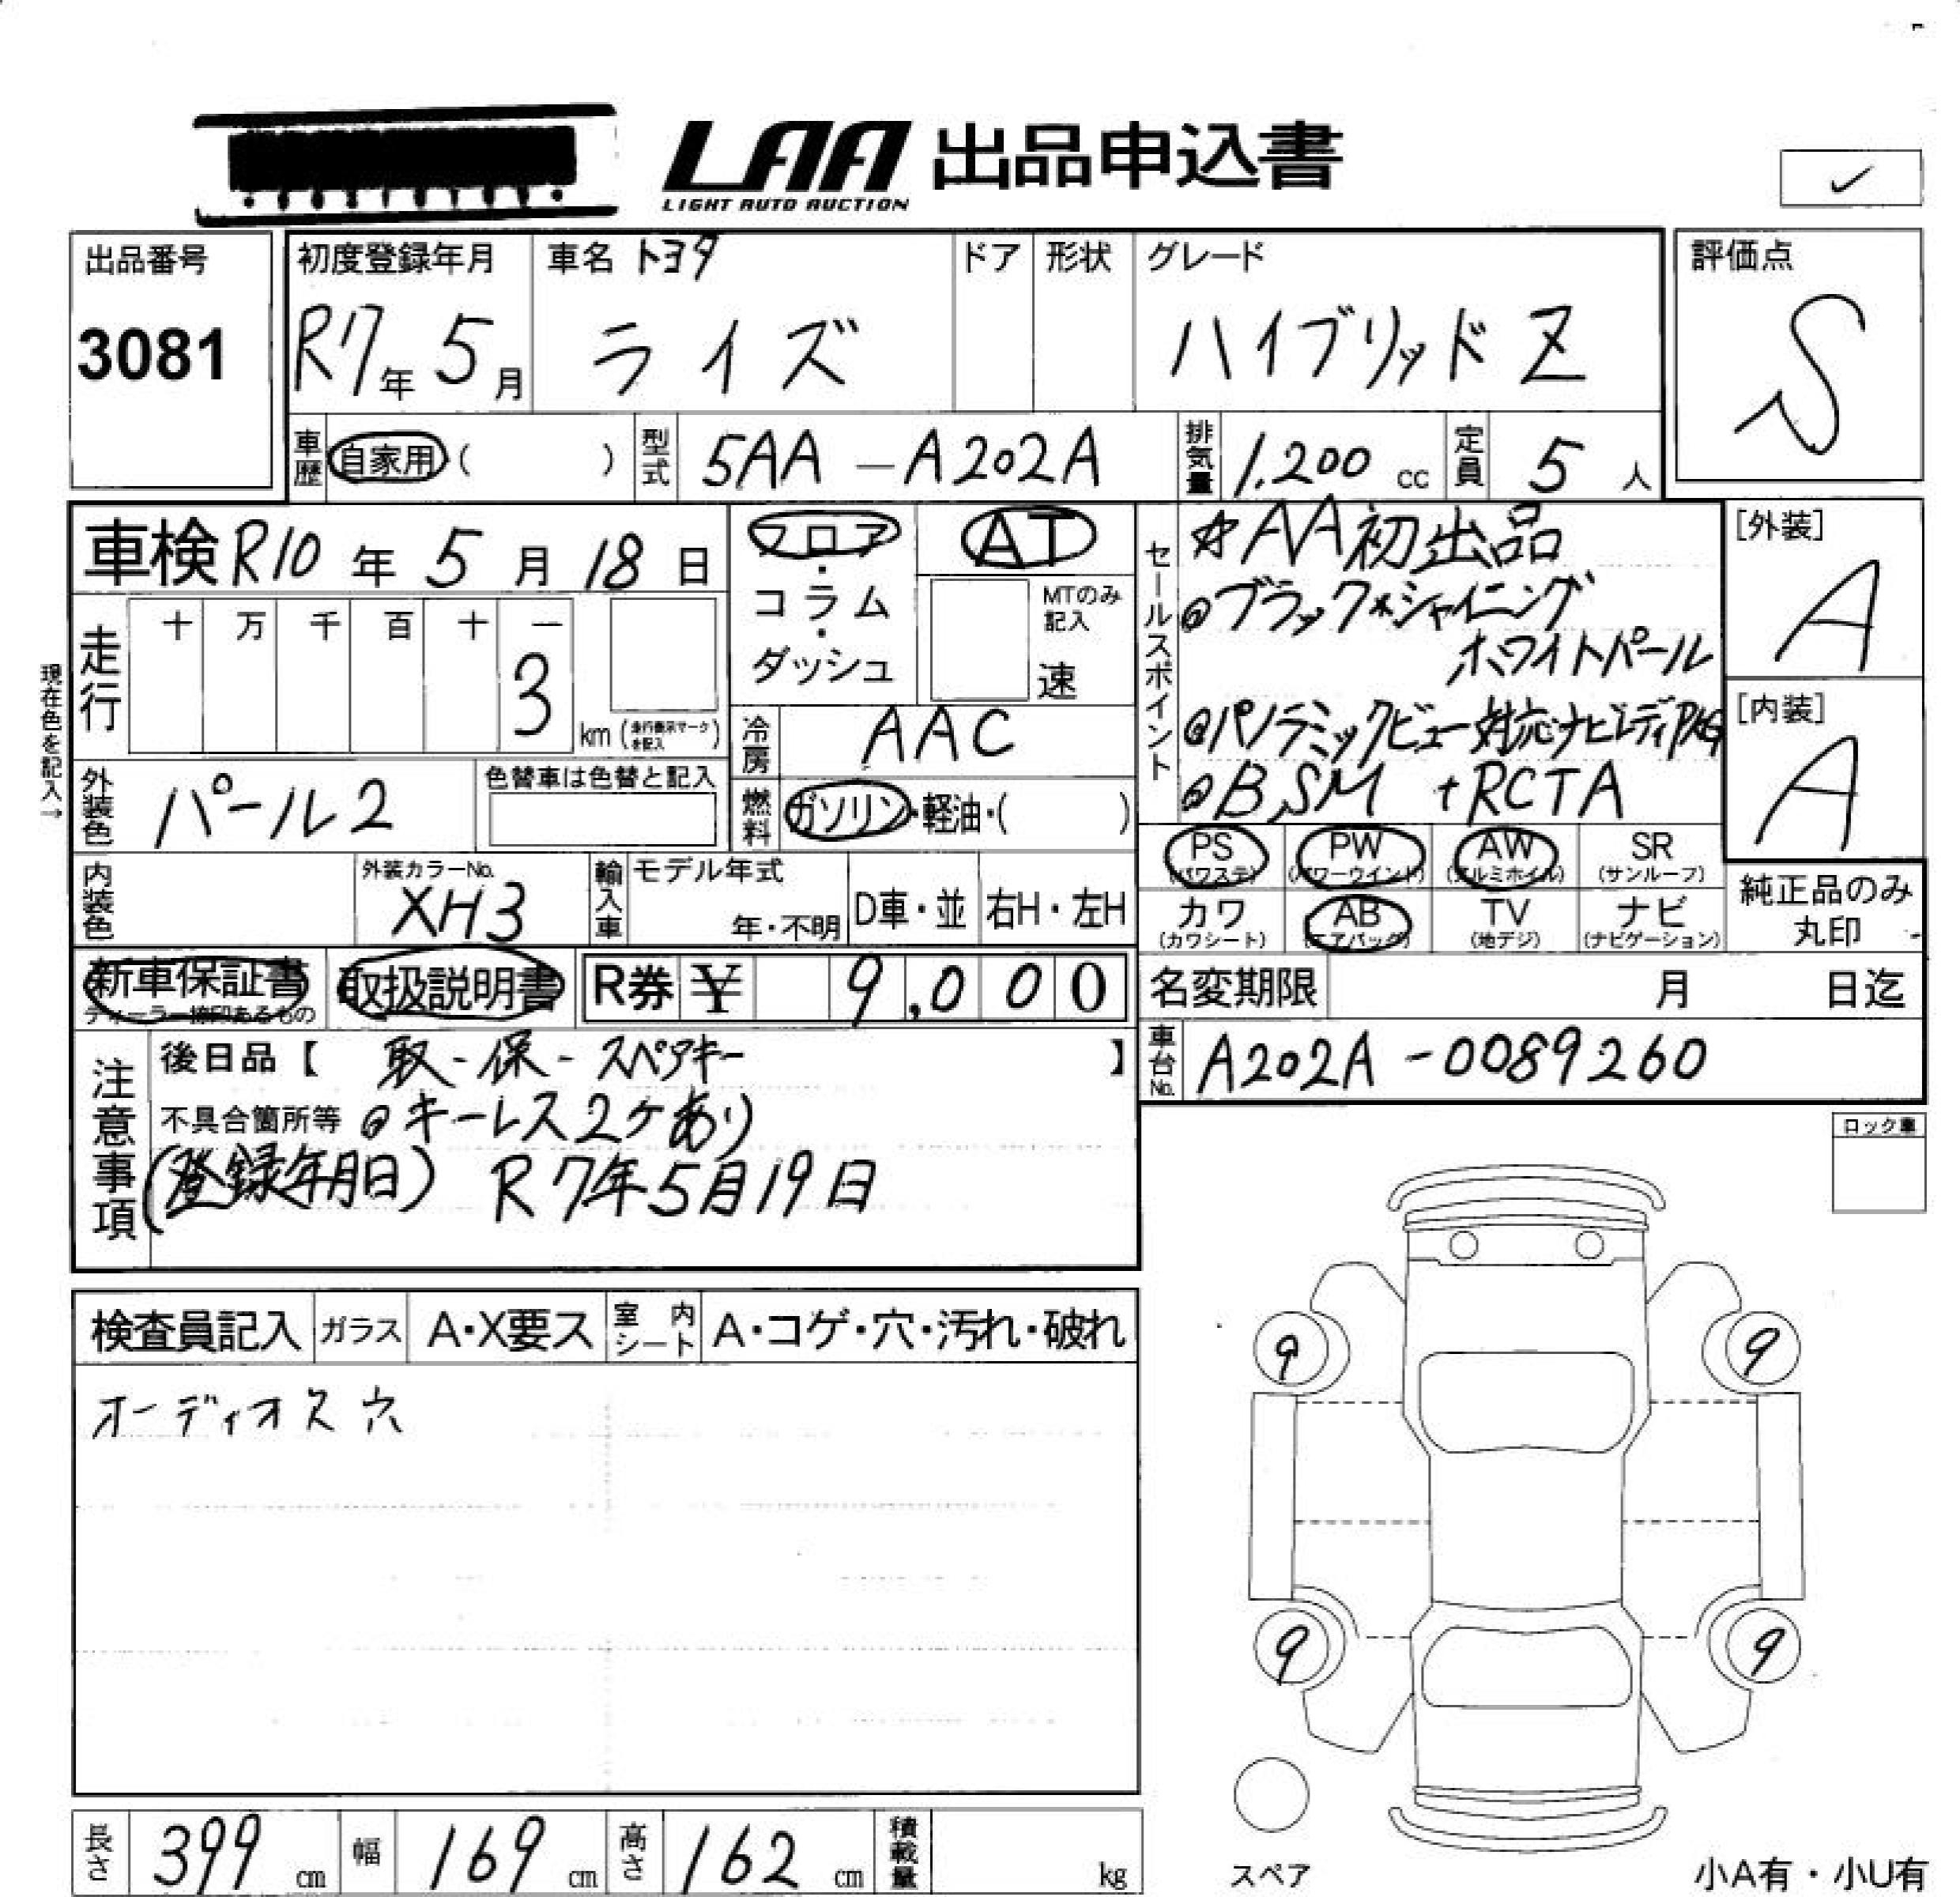 LAA 出品申込書
LIGHT AUTO AUCTION
✓
出品番号
3081
初度登録年月
R7年 5月
車名 トヨタ
ライズ
ドア
形状
グレード
ハイブリッド Z
評価点
S
車歴
自家用 ( )
型式
5AA - A202A
排気量
1,200 cc
定員
5 人
車検 R10年 5月 18日
フロア・コラム・ダッシュ
AT
MTのみ記入
速
セールスポイント
☆AA初出品
@ブラック*シャイニング
ホワイトパール
@パノラミックビュー対応ナビレディPKG
@BSM +RCTA
[外装]
A
[内装]
A
現在色を記入→
走行
十 万 千 百 十 一
3
km (走行表示マークを記入)
冷房
AAC
外装色
パール2
色替車は色替と記入
燃料
ガソリン・軽油・( )
PS (パワステ)
PW (パワーウインド)
AW (アルミホイル)
SR (サンルーフ)
カワ (カワシート)
AB (エアバッグ)
TV (地デジ)
ナビ (ナビゲーション)
純正品のみ
丸印
内装色
外装カラーNo.
XH3
輸入車
モデル年式
年・不明
D車・並
右H・左H
新車保証書
ディーラー捺印あるもの
取扱説明書
R券 ¥ 9,000
名変期限 月 日迄
車台No.
A202A-0089260
注意事項
後日品【 取-保-スペアキー 】
不具合箇所等 @キーレス2ケあり
(登録年月日) R7年5月19日
ロック車
検査員記入
ガラス
A・X要ス
室内シート
A・コゲ・穴・汚れ・破れ
オーディオス穴
9
9
9
9
スペア
小A有・小U有
長さ 399 cm
幅 169 cm
高さ 162 cm
積載量 kg